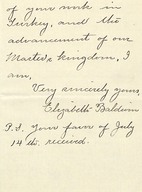 of your work in
Turkey, and the
advancement of our
Master's kingdom, I
am,
Very sincerely yours,
Elizabeth Baldwin
P.S. Your favor of July
14 th. received.